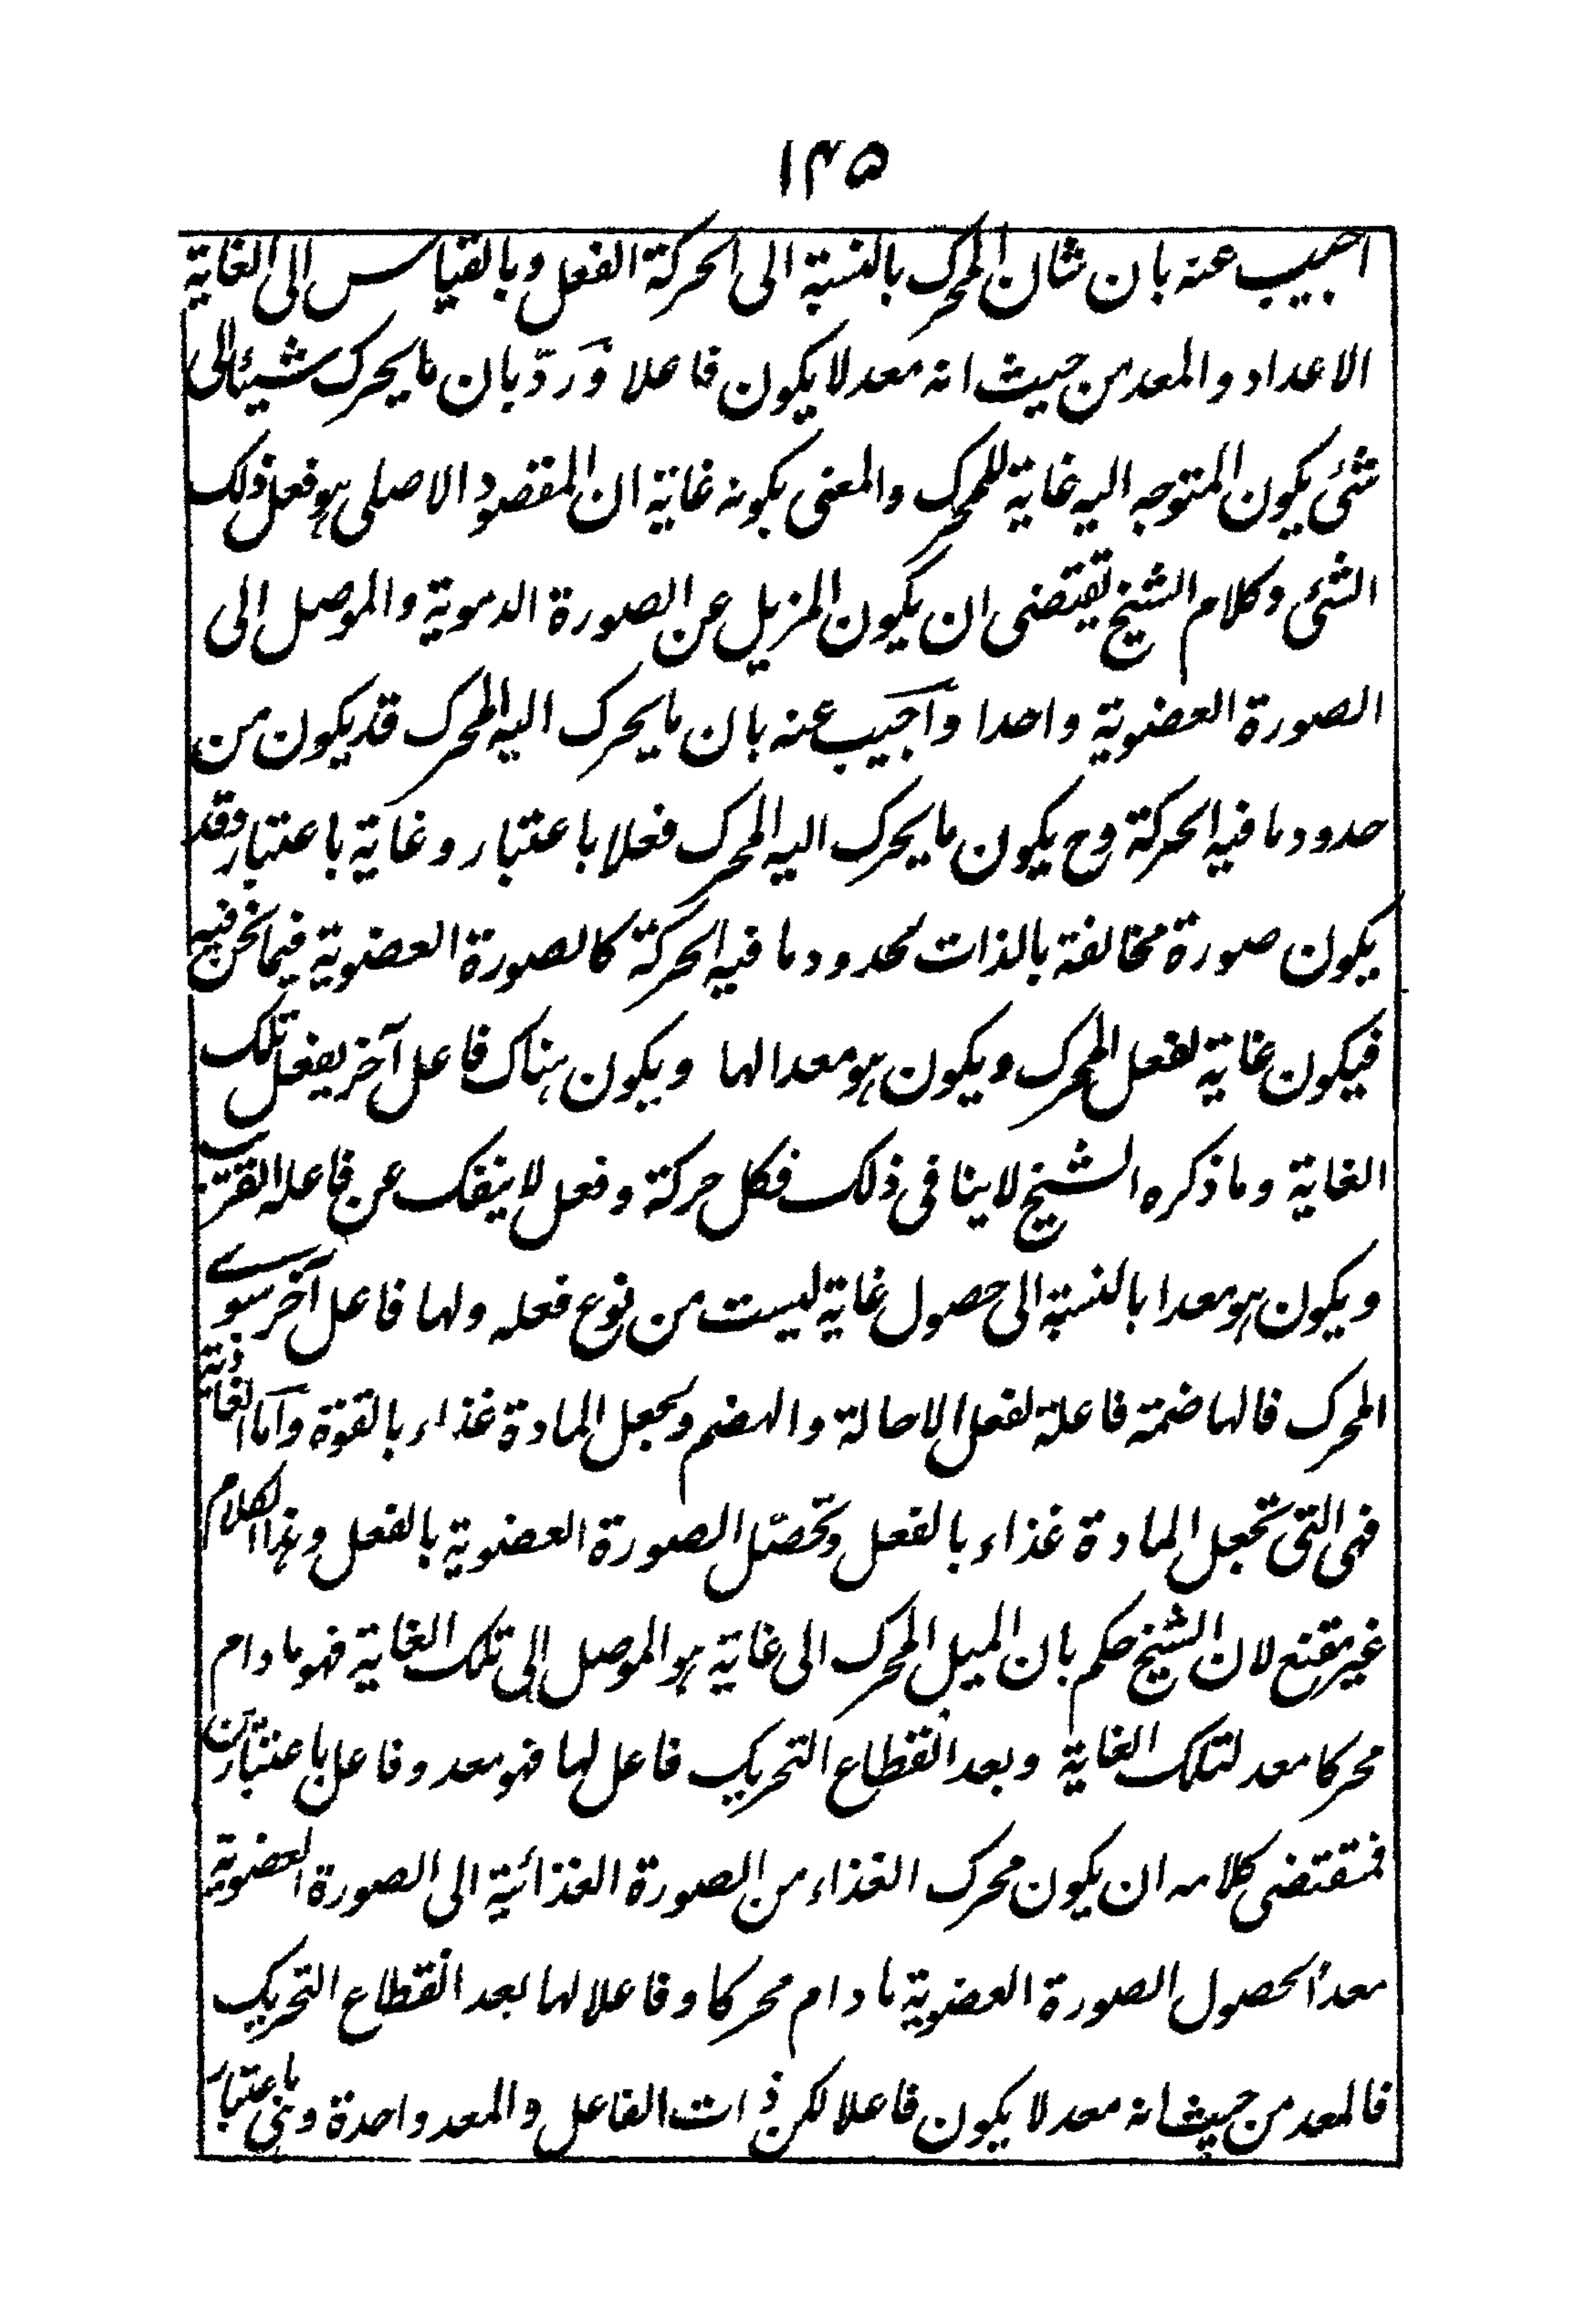 ۱۴۵
اجيب عنه بان شان المحرك بالنسبة الى الحركة الفعل وبالقياس الى الغاية
الاعداد والمعد من حيث انه معد لا يكون فاعلا ورَدّ بان ما يحرك شيئا الى
شئ يكون المتوجه اليه غاية للمحرك والمعنى بكونه غاية ان المقصود الاصلى هو فعل ذلك
الشئ وكلام الشيخ تقتضى ان يكون المزيل عن الصورة الدموية والموصل الى
الصورة العضوية واحدا واجيب عنه بان ما يحرك اليه المحرك قد يكون من
حدود ما فيه الحركة وح يكون ما يحرك اليه المحرك فعلا باعتبار وغاية باعتبار وقد
يكون صورة مخالفة بالذات لحدود ما فيه الحركة كالصورة العضوية فيما نحن فيه
فيكون غاية لفعل المحرك ويكون هو معدا لها ويكون هناك فاعل آخر يفعل تلك
الغاية وما ذكره الشيخ لا ينافى ذلك فكل حركة وفعل لا ينفك عن فاعله القريب
ويكون هو معدا بالنسبة الى حصول غاية ليست من نوع فعله ولها فاعل آخر سوى
المحرك فالهاضمة فاعلة لفعل الاحالة والهضم وبجعل المادة غذاء بالقوة واما الغاذية
فهى التى تجعل المادة غذاء بالفعل وتحصّل الصورة العضوية بالفعل وهذا الكلام
غير مقنع لان الشيخ حكم بان الميل المحرك الى غاية هو الموصل الى تلك الغاية فهو ما دام
محركا معد لتلك الغاية وبعد انقطاع التحريك فاعل لها فهو معد وفاعل باعتبارين
فمقتضى كلامه ان يكون محرك الغذاء من الصورة الغذائية الى الصورة العضوية
معدا لحصول الصورة العضوية ما دام محركا وفاعلا لها بعد انقطاع التحريك
فالمعد من حيث انه معد لا يكون فاعلا لكن ذات الفاعل والمعد واحدة وهى باعتبار